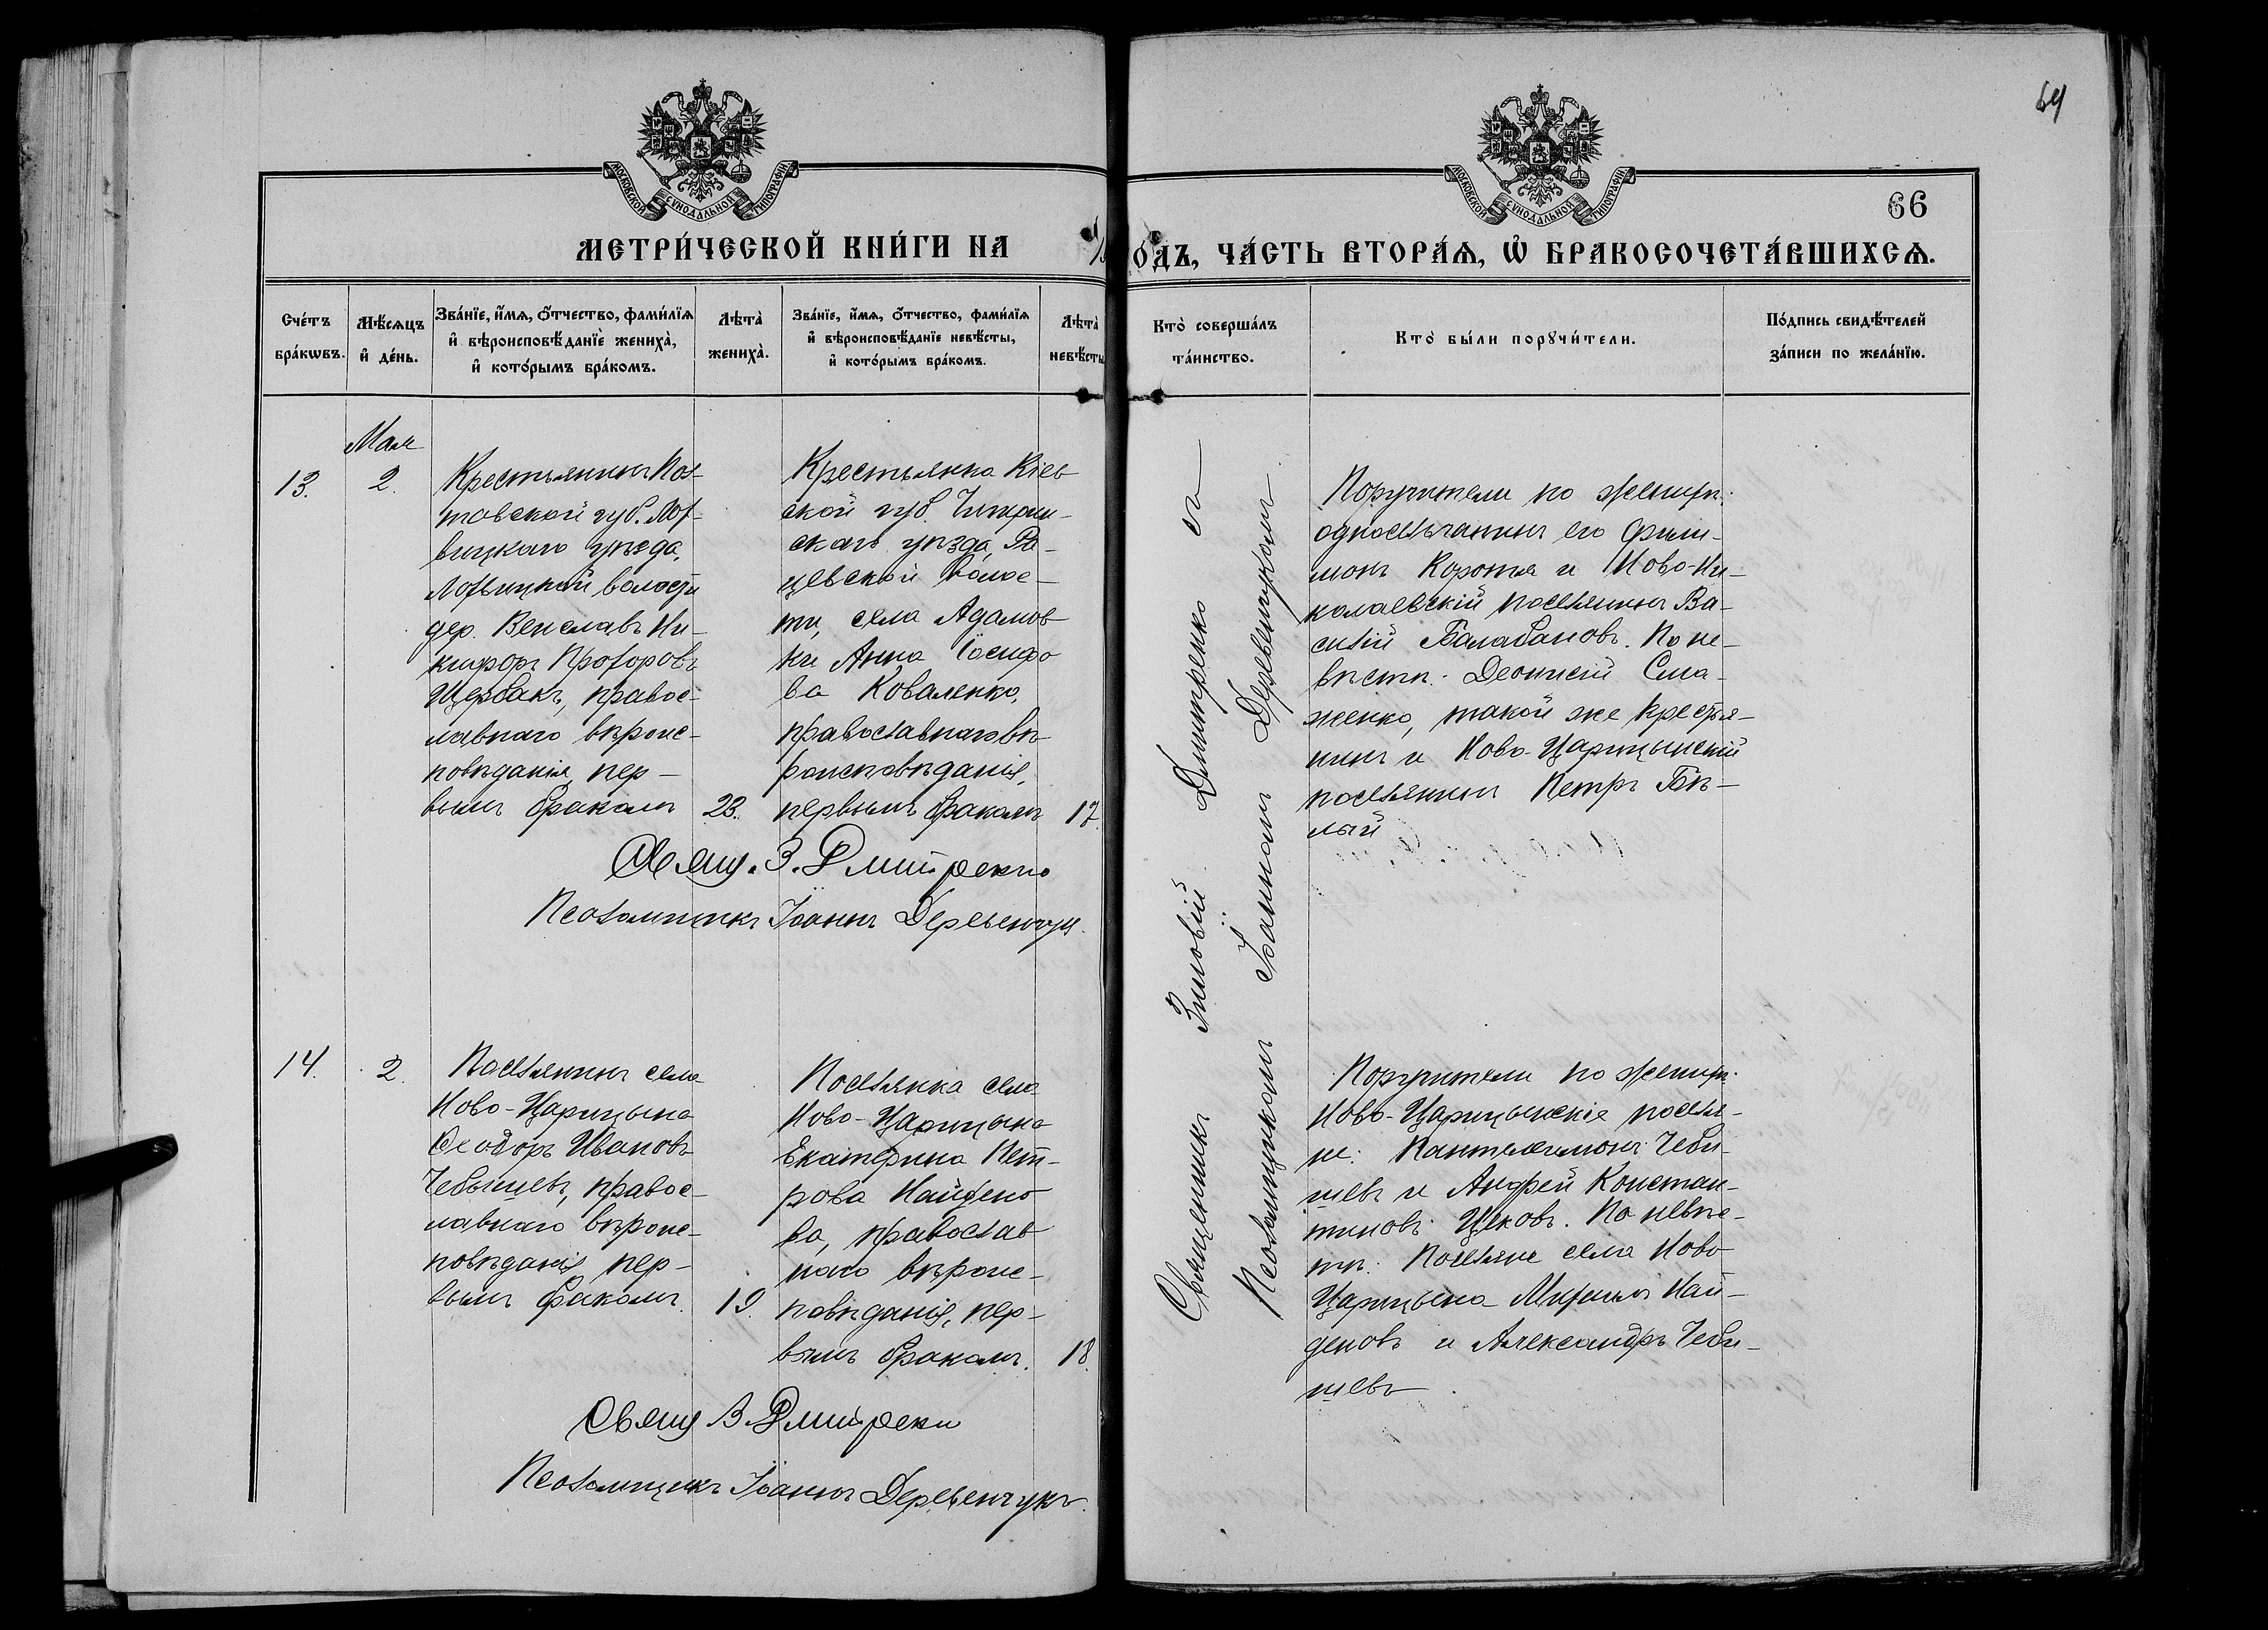 64
66
МОСКОВСКОЙ СУНОДАЛЬНОЙ ТИПОГРАФІИ
МОСКОВСКОЙ СУНОДАЛЬНОЙ ТИПОГРАФІИ
МЕТРИ́ЧЕСКОЙ КНИ́ГИ НА
ОДЪ, ЧА́СТЬ ВТОРА́Ѧ, Ѡ҆ БРАКОСОЧЕТА́ВШИХСѦ.
Сче́тъ
бра́кѡвъ.
Мѣ́сѧцъ
и҆ де́нь.
Зва́нїе, и҆́мѧ, ѻ҆́тчество, фами́лїѧ
и҆ вѣроисповѣ́данїе жениха̀,
и҆ кото́рымъ бра́комъ.
Лѣта̀
жениха̀.
Зва́нїе, и҆́мѧ, ѻ҆́тчество, фами́лїѧ
и҆ вѣроисповѣ́данїе невѣ́сты,
и҆ кото́рымъ бра́комъ.
Лѣта̀
невѣ́сты
Кто̀ соверша́лъ
та́инство.
Кто̀ бы́ли порꙋчи́тели.
По́дпись свидѣ́телей
за́писи по жела́нїю.
Мая
13.
2.
Крестьянинъ Пол-
тавской губ. Лох-
вицкаго уѣзда,
Лохвицкой волости
дер. Венславъ Ни-
кифоръ Прохоровъ
Щербакъ, правос-
лавнаго вѣроис-
повѣданія, пер-
вымъ бракомъ
23.
Крестьянка Кіев
ской губ. Чигрин-
скаго уѣзда, Ра-
цевской Волос-
ти, села Адамов
ки Анна Іосифо
ва Коваленко,
православнаго вѣ
роисповѣданія,
первымъ бракомъ
17.
Свящ. З. Дмитренко
Псаломщикъ Іоаннъ Деревенчук
Священникъ Зиновій Дмитренко съ
Псаломщикомъ Іоанномъ Деревенчукомъ
Поручители по женихѣ:
односельчанинъ его Фили-
монъ Коротя и Ново-Ни-
колаевскій поселянинъ Ва-
силій Балабановъ. По не-
вѣстѣ: Деонисій Сма-
женко, такой же крестья-
нинъ и Ново-Царицынскій
поселянинъ Петръ Бѣ-
лый
14.
2.
Поселянинъ села
Ново-Царицына
Ѳеодоръ Ивановъ
Чебышевъ, правос-
лавнаго вѣроис-
повѣданія, пер-
вымъ бракомъ.
19.
Поселянка села
Ново-Царицына
Екатерина Пет-
рова Найдено
ва, православ
наго вѣроис-
повѣданія, пер-
вымъ бракомъ.
18.
Свящ З. Дмитренк
Псаломщикъ Іоаннъ Деревенчукъ.
Поручители по женихѣ:
Ново-Царицынскіе поселя-
не: Пантелеимонъ Чебы-
шевъ и Андрей Констан-
тиновъ Цековъ. По невѣс-
тѣ: Поселяне села Ново
Царицына Михаилъ Най-
деновъ и Александръ Чебы-
шевъ